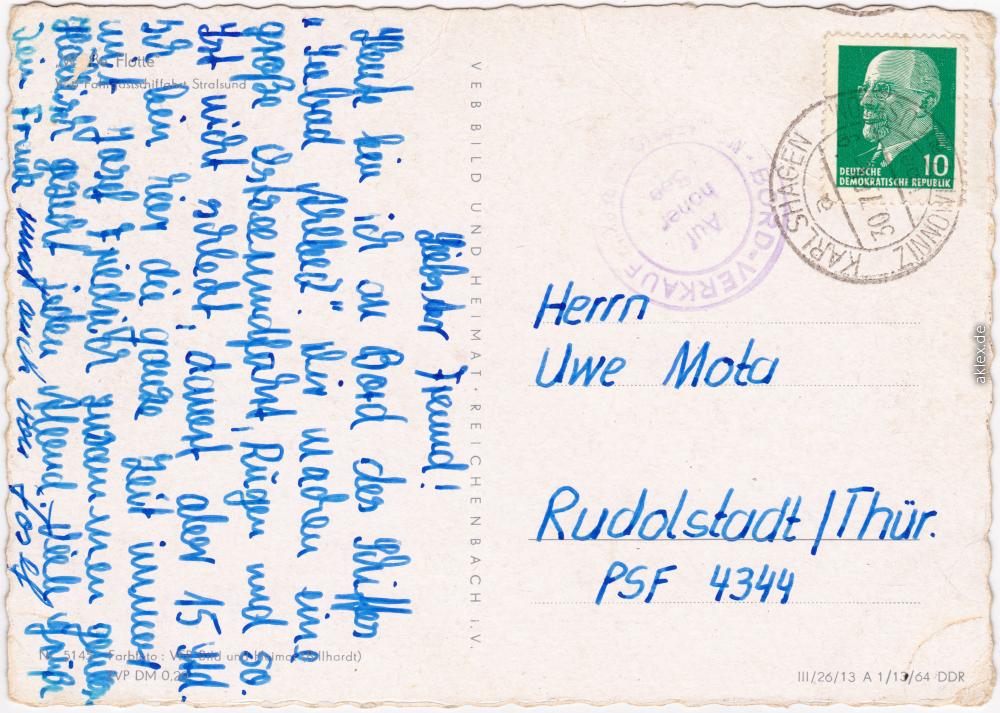 "M. Bg. Flotte"
VEB Fahrgastschiffahrt Stralsund
Liebster Freund!
Heute bin ich an Bord des Schiffes
"Seebad Ahlbeck". Wir machen eine
große Ostseerundfahrt, Rügen und so.
Ist nicht schlecht, dauert aber 15 Std.
Ich bin hier die ganze Zeit immer
mit Josef Friedrich zusammen
gesucht jeden Abend. Viele Grüße
Dein Frank und auch von Josef
VEB BILD UND HEIMAT · REICHENBACH I. V.
Farbfoto: VEB Bild und Heimat
EVP DM 0,20
DEUTSCHE
DEMOKRATISCHE REPUBLIK
10
KARLSHAGEN
a
30.7.
BORD-VERKAUF
Auf
hoher
See
Herrn
Uwe Mota
Rudolstadt/Thür.
PSF 4344
III/26/13 A 1/13/64 DDR
aklex.de